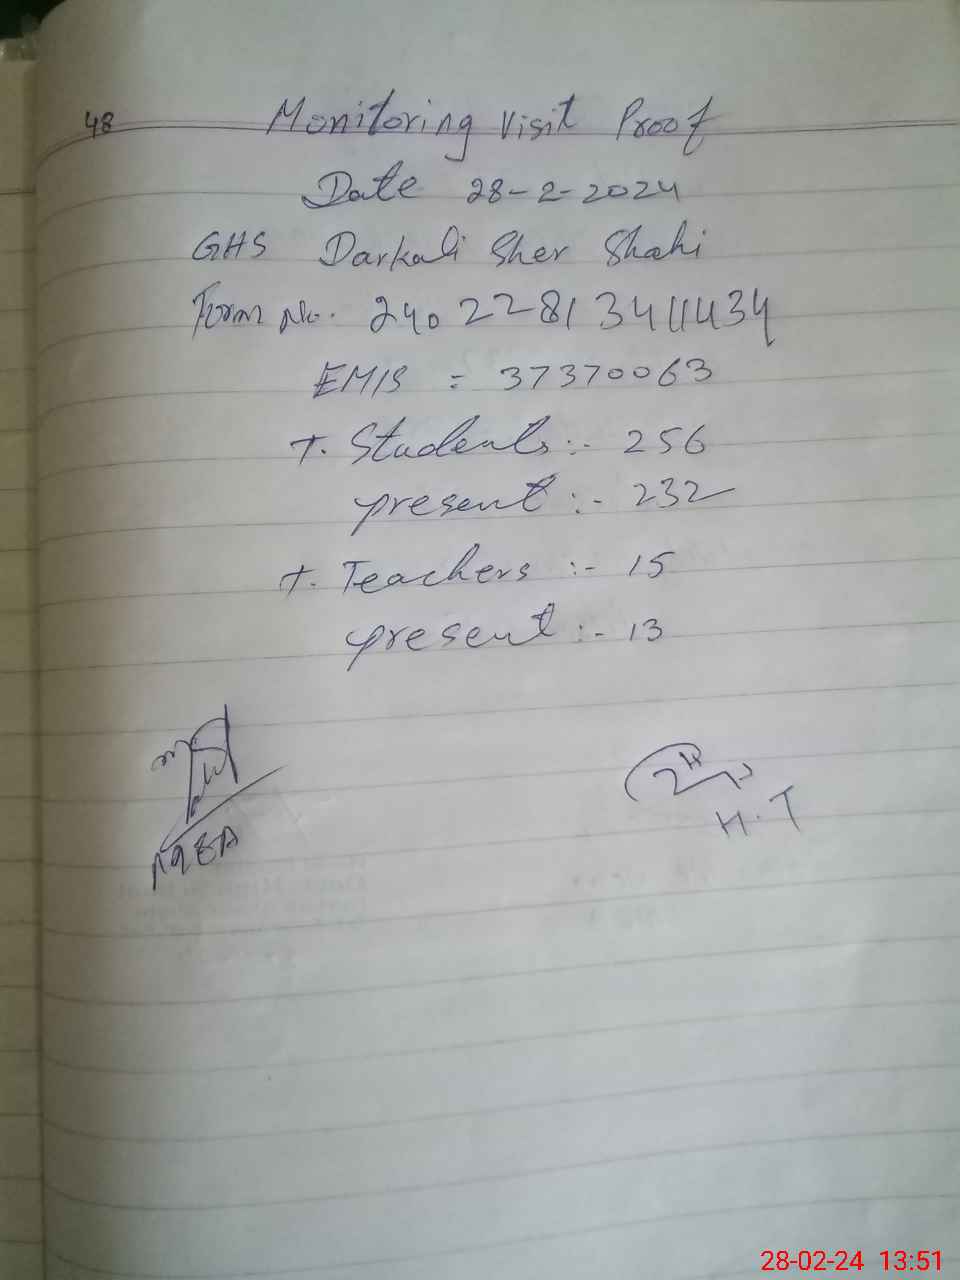 48
Monitoring Visit Proof
Date 28-2-2024
GHS Darkali Sher Shahi
Form No. 24022813411434
EMIS = 37370063
T. Students :- 256
present :- 232
T. Teachers :- 15
present :- 13
H.T
28-02-24 13:51